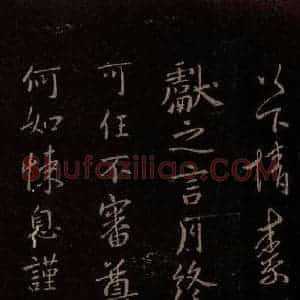 以下情
獻之言月終
可任不審尊
何如悚息謹
Shufaziliao.COM